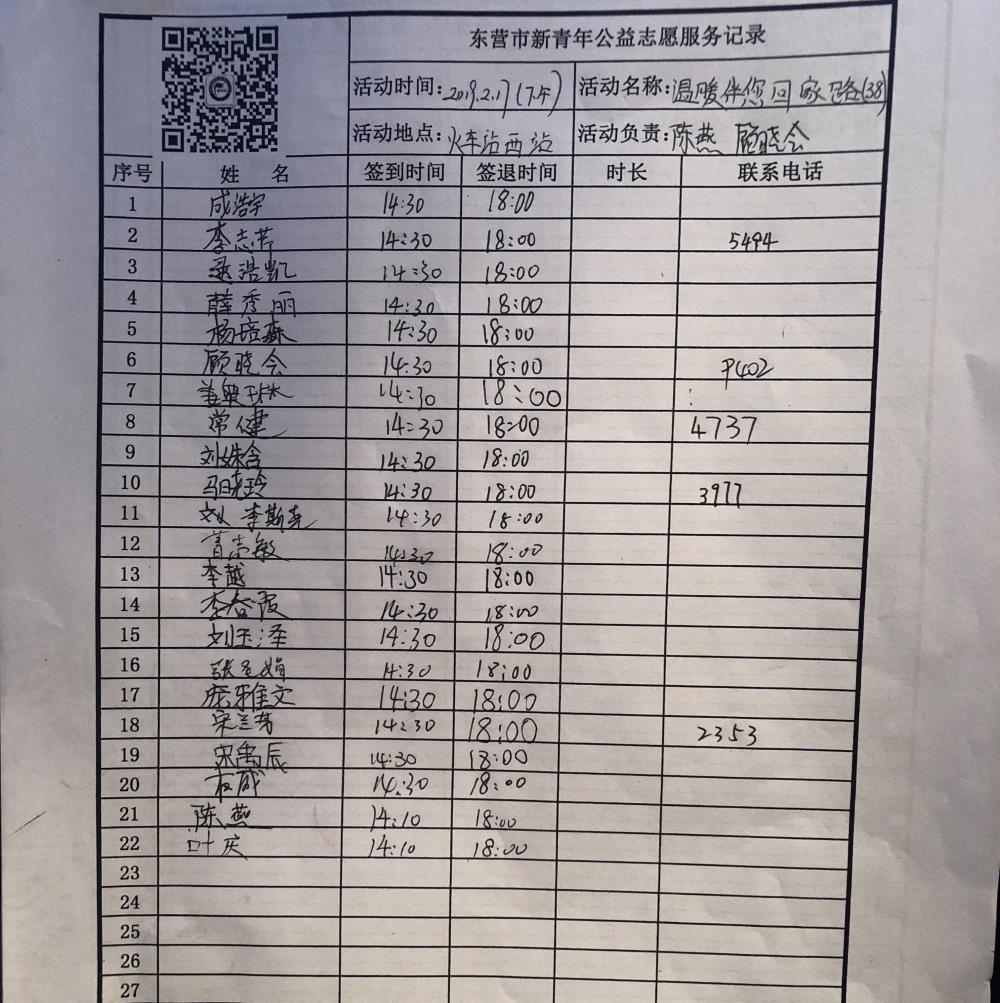 东营市新青年公益志愿服务记录
活动时间:2019.2.17(下午) 活动名称:温暖伴您回家路(38)
活动地点:火车站西站 活动负责:陈燕 顾晓会
序号 姓 名 签到时间 签退时间 时长 联系电话
1 成浩宇 14:30 18:00
2 李志芹 14:30 18:00 5494
3 浩凯 14:30 18:00
4 薛秀丽 14:30 18:00
5 杨培森 14:30 18:00
6 顾晓会 14:30 18:00 P402
7 14:30 18:00
8 常健 14:30 18:00 4737
9 刘姝含 14:30 18:00
10 马晓玲 14:30 18:00 3977
11 刘李斯尧 14:30 18:00
12 敏 14:30 18:00
13 李越 14:30 18:00
14 李春霞 14:30 18:00
15 刘玉泽 14:30 18:00
16 张 娟 14:30 18:00
17 庞雅文 14:30 18:00
18 宋兰芳 14:30 18:00 2353
19 宋禹辰 14:30 18:00
20 权威 14:30 18:00
21 陈燕 14:10 18:00
22 叶庆 14:10 18:00
23
24
25
26
27